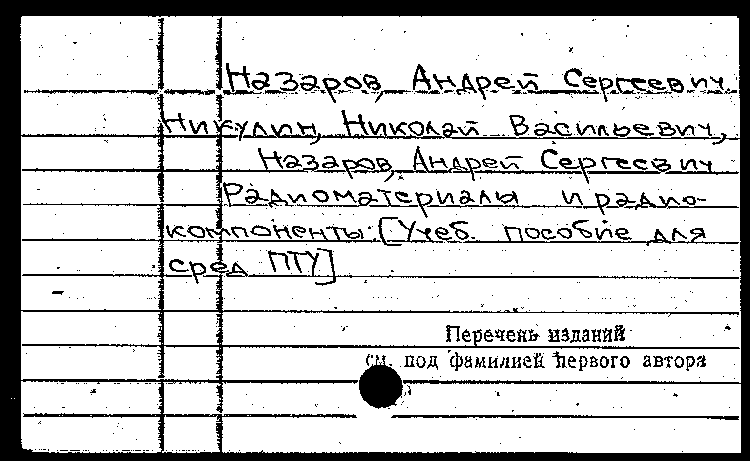 Назаров, Андрей Сергеевич.
Никулин, Николай Васильевич,
Назаров, Андрей Сергеевич
Радиоматериалы и радио-
компоненты: [Учеб. пособие для
сред. ПТУ]
Перечень изданий
см. под фамилией первого автора